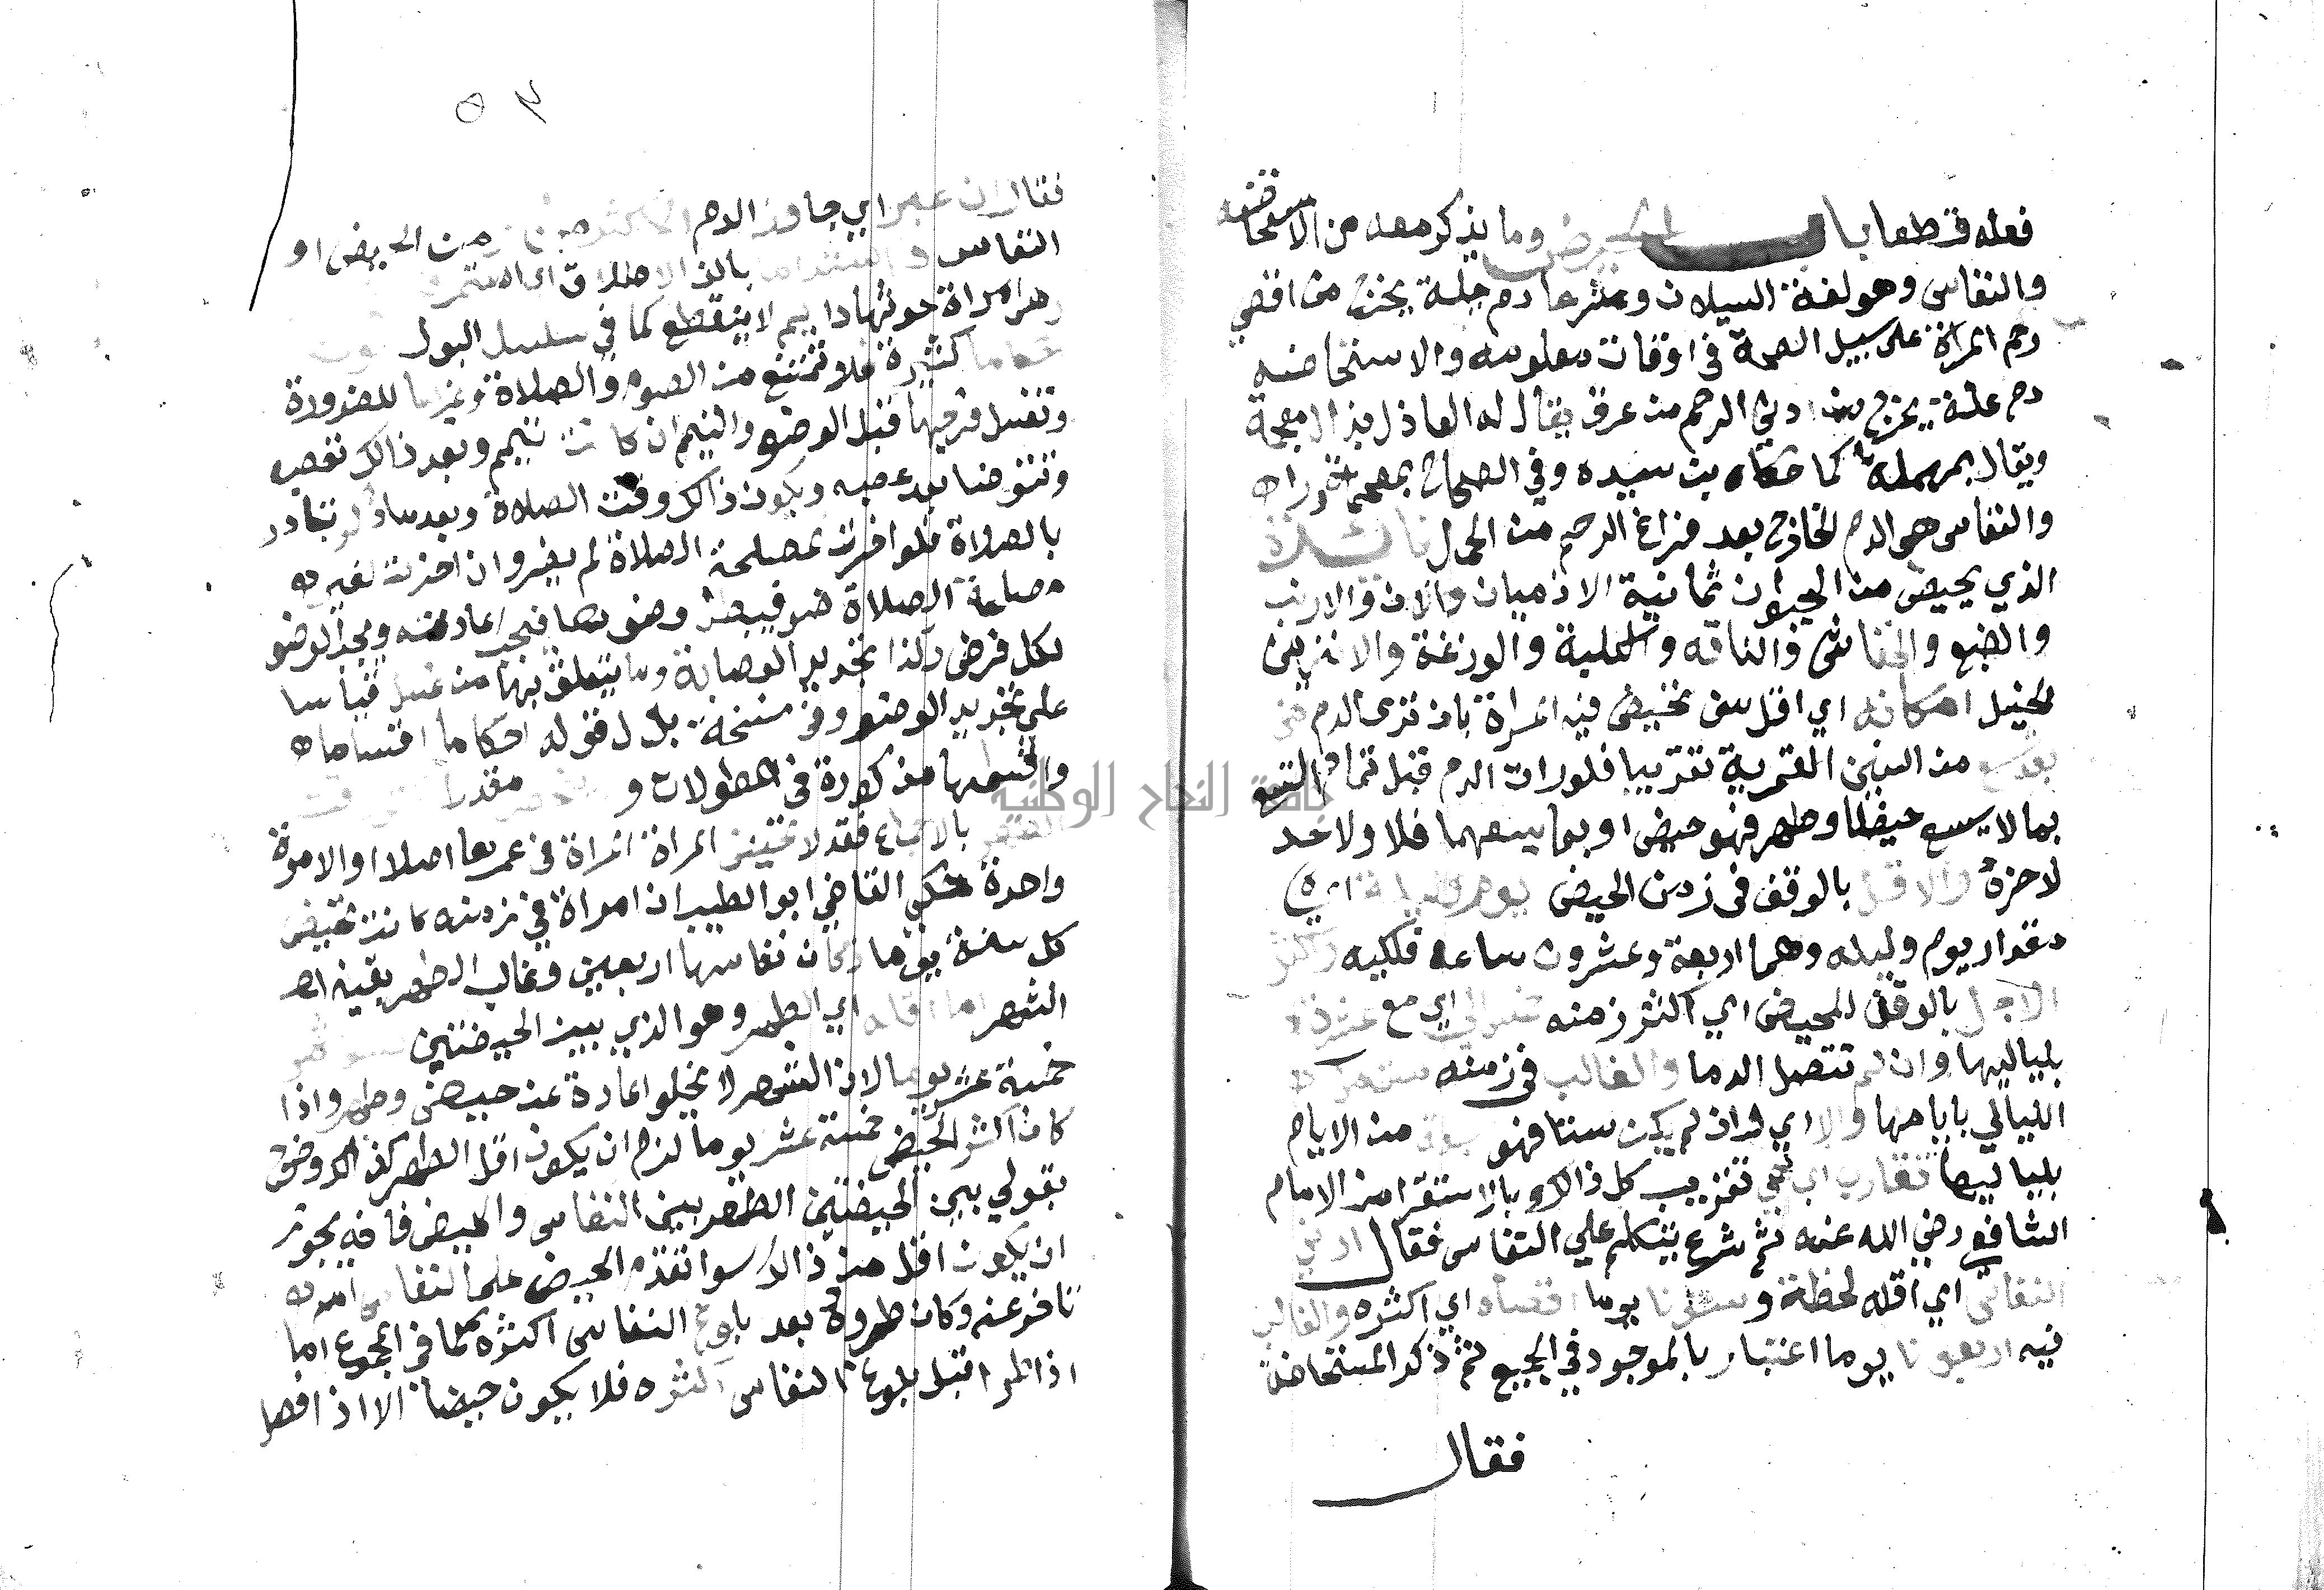 فعله قطعا باب الحيض وما يذكر معه من الاستحاضه
والنفاس وهو لغة السيلان وشرعا دم جبلة يخرج من اقصي
رحم المراة على سبيل الصحة في اوقات معلومه والاستحاضه
دم علة يخرج من ادني الرحم من عرق يقال له العاذل بذال معجمة
ويقال بمهملة كما حكاه بن سيده وفي الصحاح بمعجمة وراء
والنفاس هو الدم الخارج بعد فراغ الرحم من الحمل فائدة
الذي يحيض من الحيوان ثمانية الادميات والارنب
والضبع والخفاش والناقه والكلبة والوزغة والانثي من
الخيل امكانه اي اقل سن تحيض فيه المراة بان ترى الدم من
بعد تسع من السنين القمرية تقريبا فلو رات الدم قبل تمام التسع
بما لا يسع حيضا وطهر فهو حيض او بما يسعهما فلا ولا حد
لاخره والاقل بالوقف في زمن الحيض يوم وليلة اي
مقدار يوم وليله وهما اربعة وعشرون ساعه فلكيه واكثر
الاجل بالوقف للحيض اي اكثر زمنه اي مع
بلياليها وان لم تتصل الدما والغالب في زمنه ست من
الليالي بايامها والا اي وان لم يكن ستا فهو سبعة من الايام
بلياليها تقارب اي تقريب كل ذالك بالاستقرا من الامام
الشافعي رضي الله عنه ثم شرع يتكلم علي النفاس فقال ادني
النفاس اي اقله لحظة وستونا يوما اقصاه اي اكثره والغالب
فيه اربعونا يوما اعتبار بالموجود في الجميع ثم ذكر المستحاضة
فقال
٥٣
فقال ان عبر اي جاوز الدم الاكثر من زمن الحيض او
النفاس بالف الاطلاق اي استمر
المراة حدثها دايم لا ينقطع كما في سلس البول
كثيرة فلا تمتنع من الصوم والصلاة وغيرها للضرورة
وتغسل فرجها قبل الوضو والتيمم ان كانت تتيمم وبعد ذالك تعصبه
وتتوضا بعد عصبه ويكون ذالك وقت الصلاة وبعد تبادر
بالصلاة فلو اخرت لمصلحة الصلاة لم يضر وان اخرت لغير
مصلحة الصلاة ضر فيبطل وضوها فيجب اعادته ويجب الوضو
لكل فرض وكذا تجديد العصابة وما يتعلق بها من غسل قياسا
على تجديد الوضو وفي نسخة بدل قوله احكاما اقساما
واقسامها مذكورة في المطولات و
بالاجماع فقد لا تحيض المراة في عمرها اصلا او الا مرة
واحدة حكي القاضي ابو الطيب ان امراة في زمنه كانت تحيض
كل سنة يوما وكان نفاسها اربعين وغالب الطهر بقية
الشهر اما اقله اي الطهر وهو الذي بين الحيضتين
خمسة عشر يوما لان الشهر لا يخلو اعادة عن حيض وطهر واذا
كان اكثر الحيض خمسة عشر يوما لزم ان يكون اقل الطهر كذالك وخرج
بقولي بين الحيضتين الطهر بين النفاس والحيض فانه يجوز
ان يكون اقل من ذالك سوا تقدم الحيض على النفاس ام
تاخر عنه وكان طروه بعد بلوغ النفاس اكثره كما في المجموع اما
اذا طرا قبل بلوغ النفاس اكثره فلا يكون حيضا الا اذا فصل
جامعة النجاح الوطنية